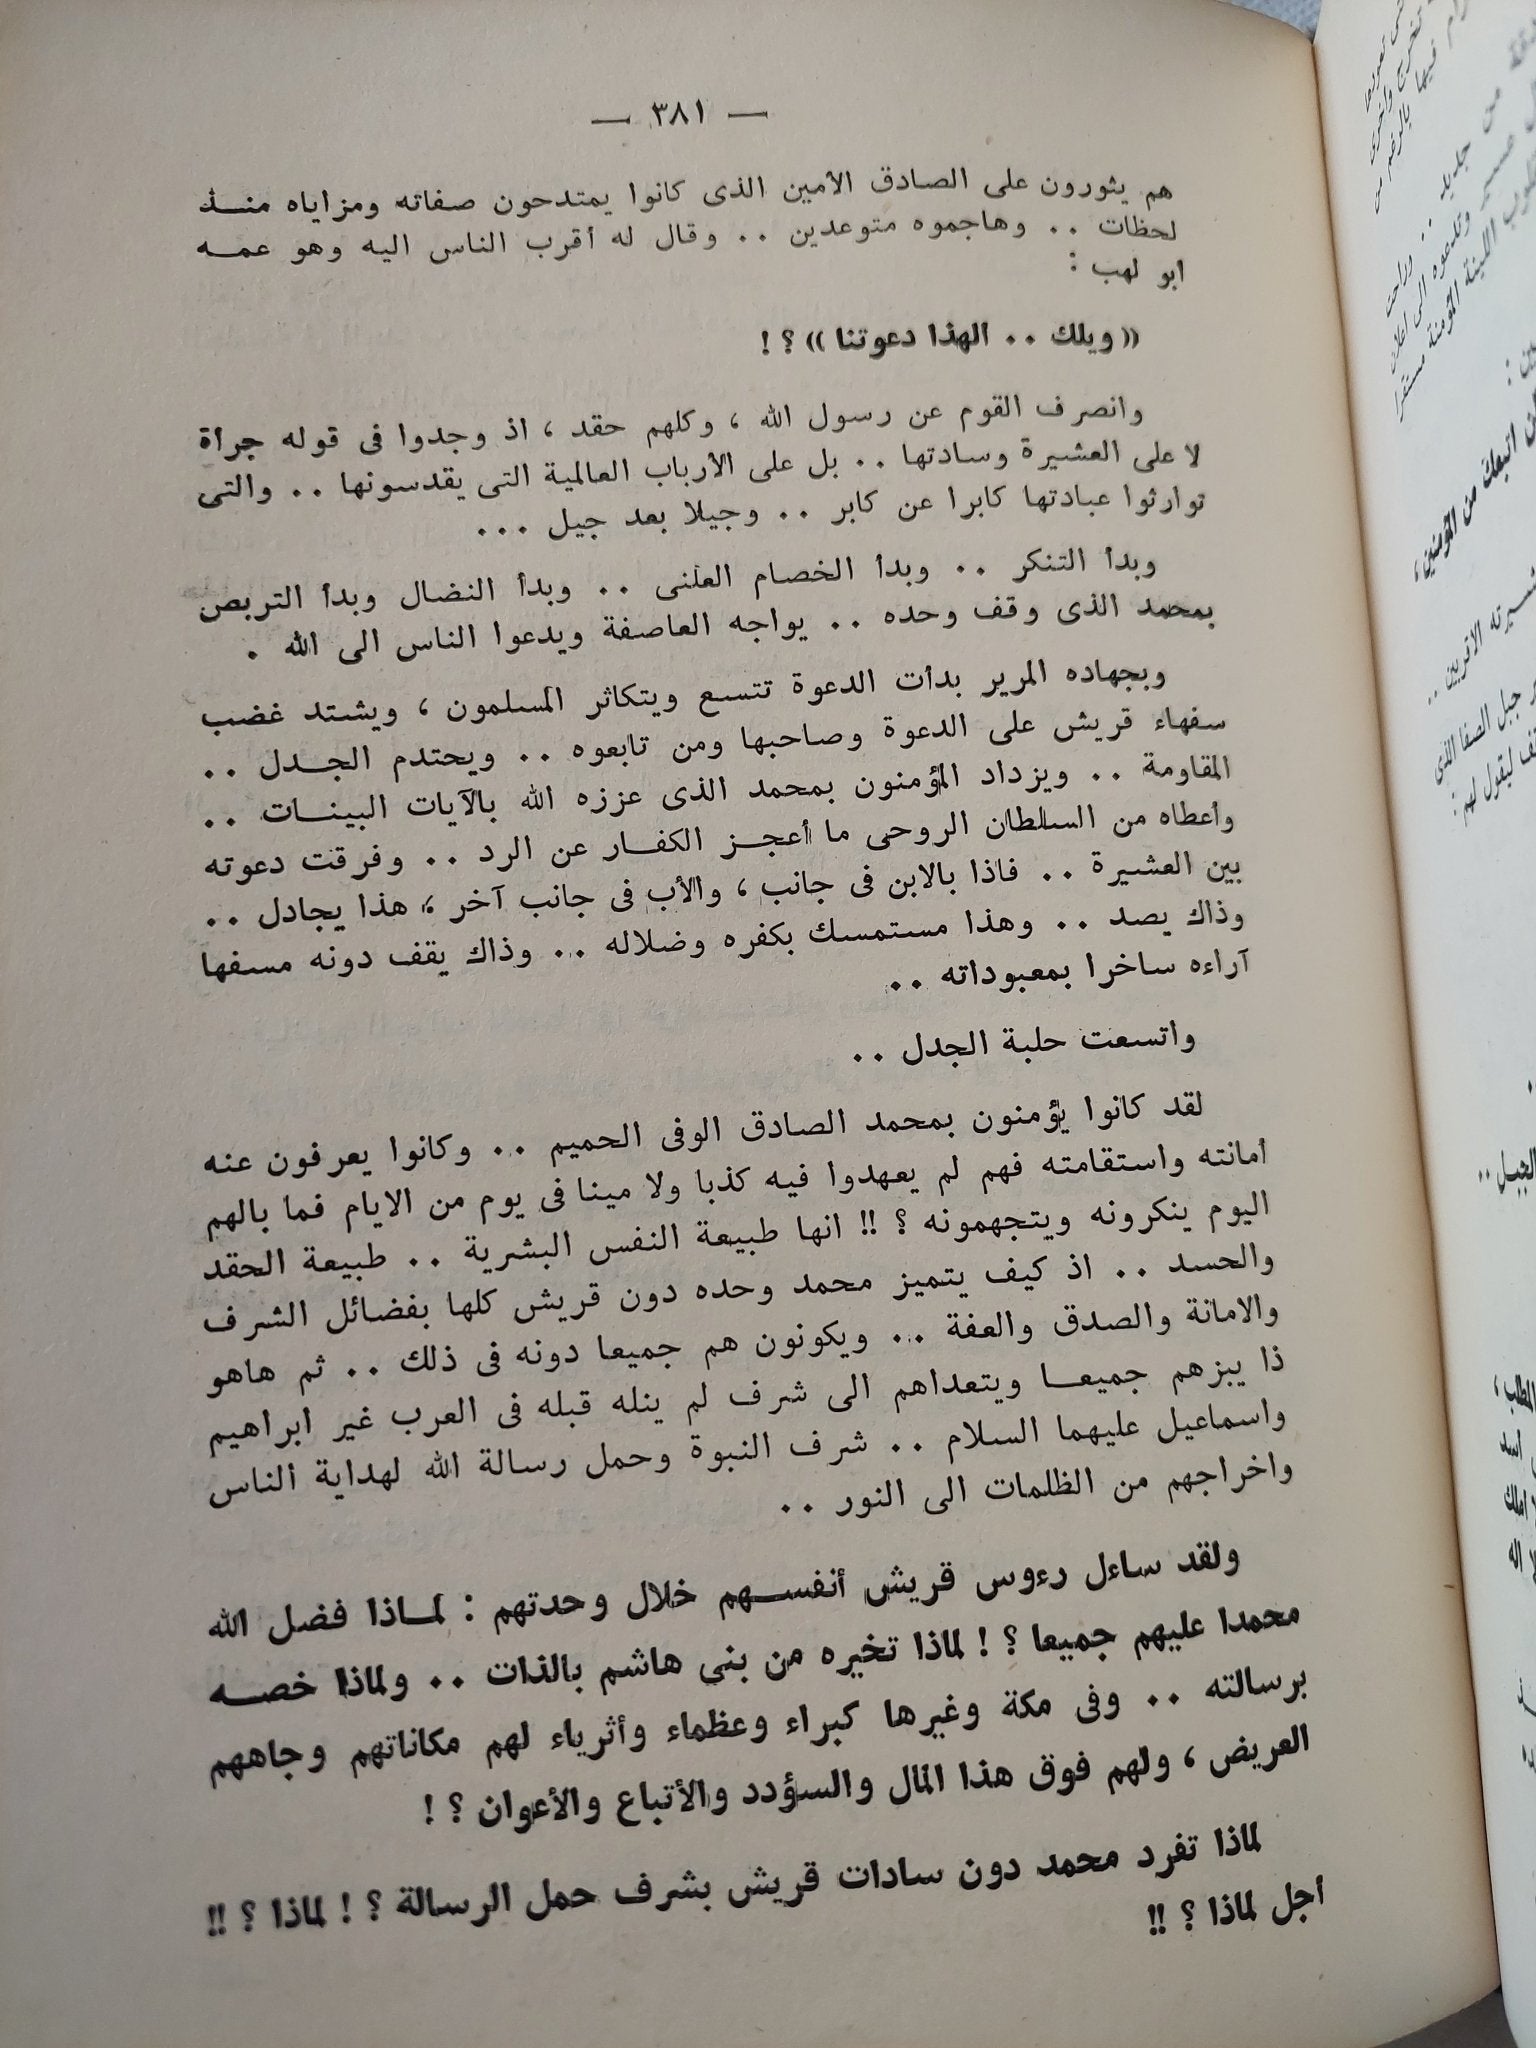 — ٣٨١ —
هم يثورون على الصادق الأمين الذى كانوا يمتدحون صفاته ومزاياه منذ
لحظات .. وهاجموه متوعدين .. وقال له أقرب الناس اليه وهو عمه
ابو لهب :
« ويلك .. الهذا دعوتنا » ؟ !
وانصرف القوم عن رسول الله ، وكلهم حقد ، اذ وجدوا فى قوله جرأة
لا على العشيرة وسادتها .. بل على الأرباب العالمية التى يقدسونها .. والتى
توارثوا عبادتها كابرا عن كابر .. وجيلا بعد جيل ...
وبدأ التنكر .. وبدأ الخصام العلنى .. وبدأ النضال وبدأ التربص
بمحمد الذى وقف وحده .. يواجه العاصفة ويدعوا الناس الى الله .
وبجهاده المرير بدأت الدعوة تتسع ويتكاثر المسلمون ، ويشتد غضب
سفهاء قريش على الدعوة وصاحبها ومن تابعوه .. ويحتدم الجدل ..
المقاومة .. ويزداد المؤمنون بمحمد الذى عززه الله بالآيات البينات ..
وأعطاه من السلطان الروحى ما أعجز الكفار عن الرد .. وفرقت دعوته
بين العشيرة .. فاذا بالابن فى جانب ، والأب فى جانب آخر ، هذا يجادل ..
وذاك يصد .. وهذا مستمسك بكفره وضلاله .. وذاك يقف دونه مسفها
آراءه ساخرا بمعبوداته ..
واتسعت حلبة الجدل ..
لقد كانوا يؤمنون بمحمد الصادق الوفى الحميم .. وكانوا يعرفون عنه
أمانته واستقامته فهم لم يعهدوا فيه كذبا ولا مينا فى يوم من الايام فما بالهم
اليوم ينكرونه ويتجهمونه ؟ !! انها طبيعة النفس البشرية .. طبيعة الحقد
والحسد .. اذ كيف يتميز محمد وحده دون قريش كلها بفضائل الشرف
والامانة والصدق والعفة .. ويكونون هم جميعا دونه فى ذلك .. ثم هاهو
ذا يبزهم جميعا ويتعداهم الى شرف لم ينله قبله فى العرب غير ابراهيم
واسماعيل عليهما السلام .. شرف النبوة وحمل رسالة الله لهداية الناس
واخراجهم من الظلمات الى النور ..
ولقد ساءل رءوس قريش أنفسهم خلال وحدتهم : لماذا فضل الله
محمدا عليهم جميعا ؟ ! لماذا تخيره من بنى هاشم بالذات .. ولماذا خصه
برسالته .. وفى مكة وغيرها كبراء وعظماء وأثرياء لهم مكاناتهم وجاههم
العريض ، ولهم فوق هذا المال والسؤدد والأتباع والأعوان ؟ !
لماذا تفرد محمد دون سادات قريش بشرف حمل الرسالة ؟ ! لماذا ؟ !!
أجل لماذا ؟ !!